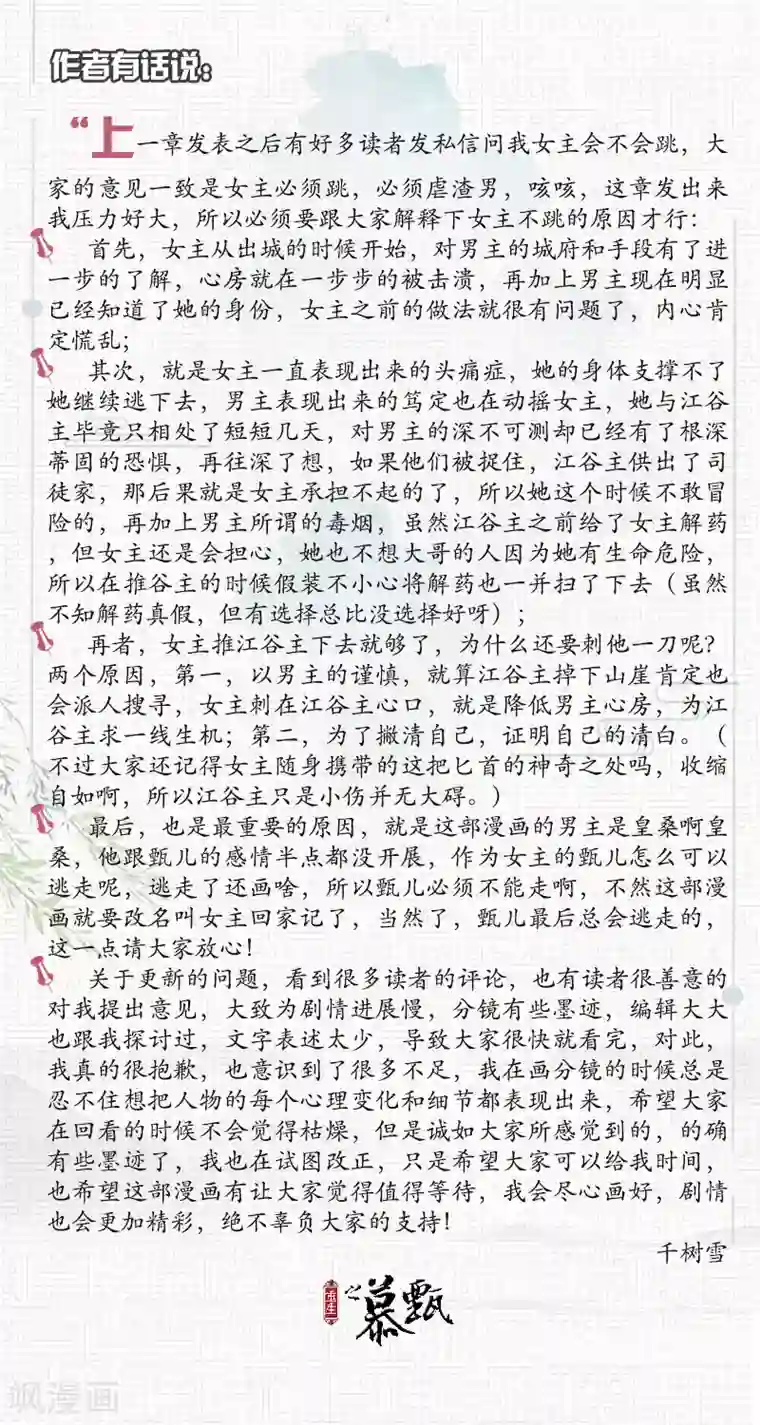 作者有话说:
“上一章发表之后有好多读者发私信问我女主会不会跳，大
家的意见一致是女主必须跳，必须虐渣男，咳咳，这章发出来
我压力好大，所以必须要跟大家解释下女主不跳的原因才行：
首先，女主从出城的时候开始，对男主的城府和手段有了进
一步的了解，心房就在一步步的被击溃，再加上男主现在明显
已经知道了她的身份，女主之前的做法就很有问题了，内心肯
定慌乱；
其次，就是女主一直表现出来的头痛症，她的身体支撑不了
她继续逃下去，男主表现出来的笃定也在动摇女主，她与江谷
主毕竟只相处了短短几天，对男主的深不可测却已经有了根深
蒂固的恐惧，再往深了想，如果他们被捉住，江谷主供出了司
徒家，那后果就是女主承担不起的了，所以她这个时候不敢冒
险的，再加上男主所谓的毒烟，虽然江谷主之前给了女主解药
，但女主还是会担心，她也不想大哥的人因为她有生命危险，
所以在推谷主的时候假装不小心将解药也一并扫了下去（虽然
不知解药真假，但有选择总比没选择好呀）；
再者，女主推江谷主下去就够了，为什么还要刺他一刀呢？
两个原因，第一，以男主的谨慎，就算江谷主掉下山崖肯定也
会派人搜寻，女主刺在江谷主心口，就是降低男主心房，为江
谷主求一线生机；第二，为了撇清自己，证明自己的清白。（
不过大家还记得女主随身携带的这把匕首的神奇之处吗，收缩
自如啊，所以江谷主只是小伤并无大碍。）
最后，也是最重要的原因，就是这部漫画的男主是皇桑啊皇
桑，他跟甄儿的感情半点都没开展，作为女主的甄儿怎么可以
逃走呢，逃走了还画啥，所以甄儿必须不能走啊，不然这部漫
画就要改名叫女主回家记了，当然了，甄儿最后总会逃走的，
这一点请大家放心！
关于更新的问题，看到很多读者的评论，也有读者很善意的
对我提出意见，大致为剧情进展慢，分镜有些墨迹，编辑大大
也跟我探讨过，文字表述太少，导致大家很快就看完，对此，
我真的很抱歉，也意识到了很多不足，我在画分镜的时候总是
忍不住想把人物的每个心理变化和细节都表现出来，希望大家
在回看的时候不会觉得枯燥，但是诚如大家所感觉到的，的确
有些墨迹了，我也在试图改正，只是希望大家可以给我时间，
也希望这部漫画有让大家觉得值得等待，我会尽心画好，剧情
也会更加精彩，绝不辜负大家的支持！
千树雪
重生之慕甄
飒漫画